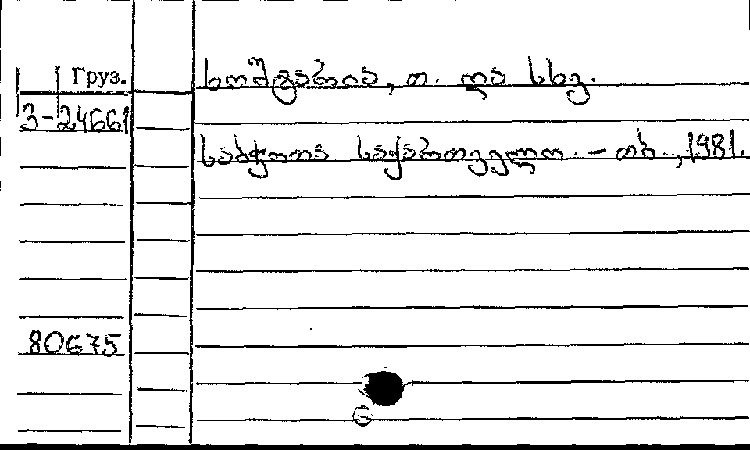 Груз.
ხოშტარია, თ. და სხვ.
3-24661
საბჭოთა საქართველო. – თბ., 1981.
80675